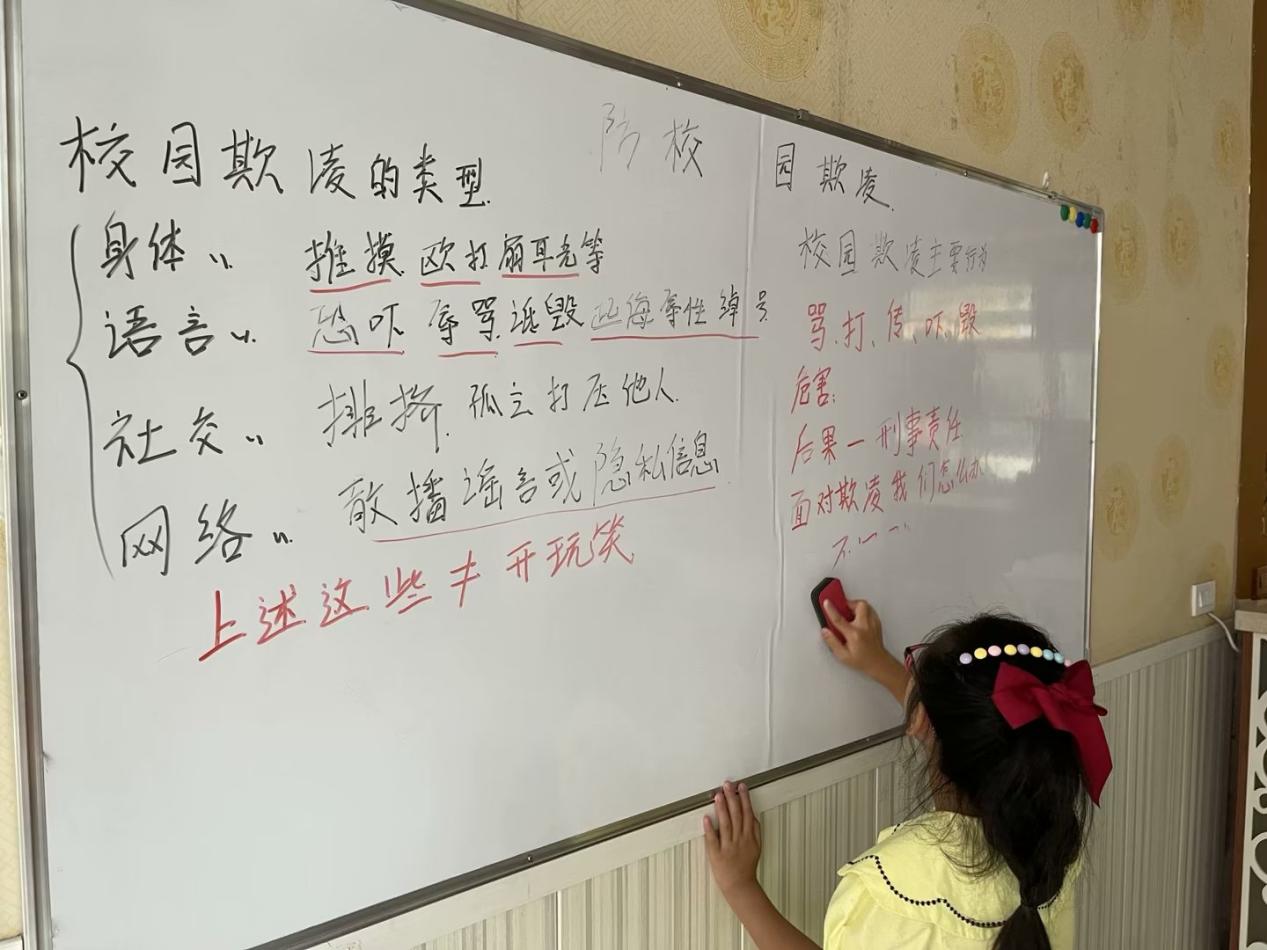 防校园欺凌
校园欺凌的类型
身体〃 推摸 欧打 扇耳光等
语言〃 恐吓 辱骂 诋毁 起侮辱性绰号
社交〃 排挤 孤立打压他人
网络〃 散播谣言或隐私信息
上述这些 开玩笑
校园欺凌主要行为
骂、打、传、吓、毁
危害:
后果一刑事责任
面对欺凌我们怎么办